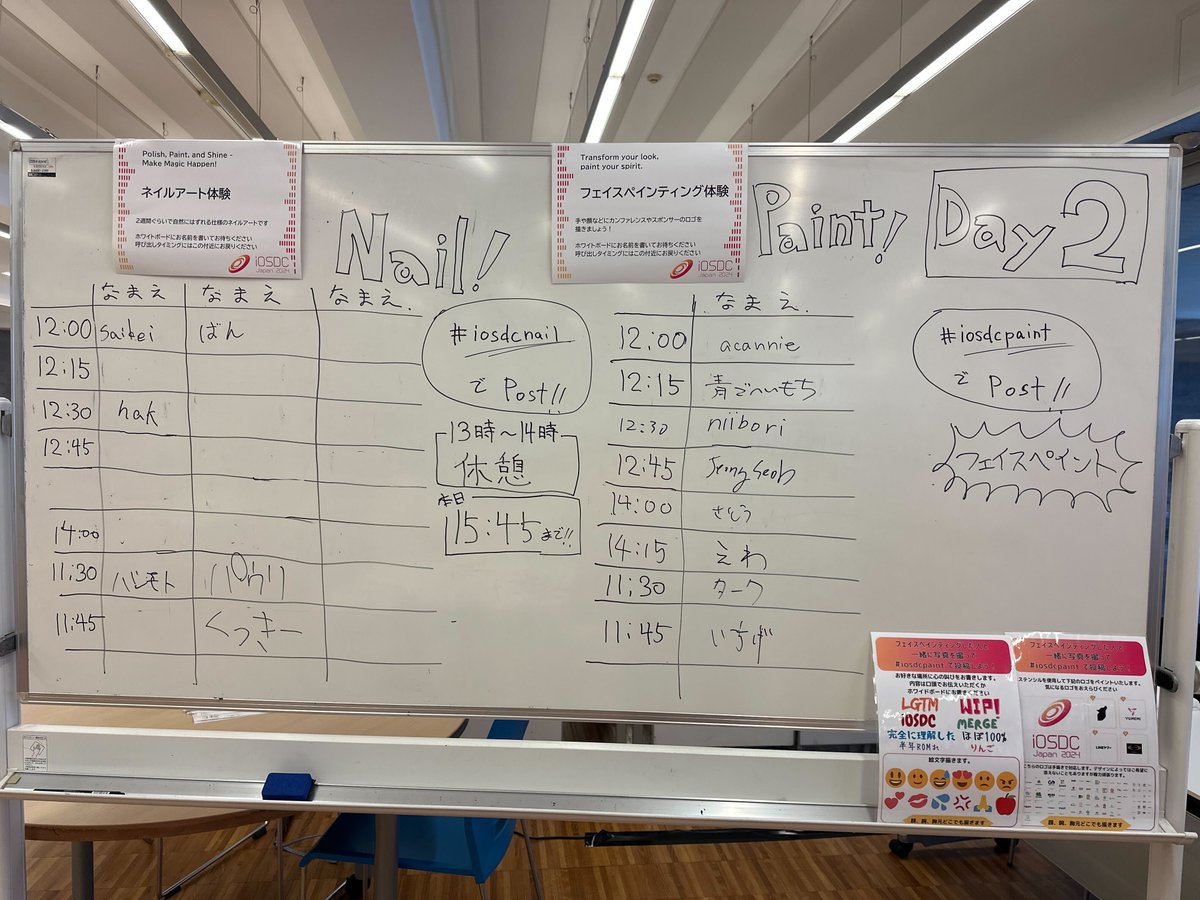 Polish, Paint, and Shine -
Make Magic Happen!
ネイルアート体験
2週間ぐらいで自然にはずれる仕様のネイルアートです
ホワイトボードにお名前を書いてお待ちください
呼び出しタイミングにはこの付近にお戻りください
iOSDC
Japan 2024
Nail!
Transform your look,
paint your spirit.
フェイスペインティング体験
手や顔などにカンファレンスやスポンサーのロゴを
描きましょう!
ホワイトボードにお名前を書いてお待ちください
呼び出しタイミングにはこの付近にお戻りください
iOSDC
Japan 2024
Paint!
Day 2
なまえ なまえ なまえ
12:00 saikei ばん
12:15
12:30 hak
12:45
14:00
11:30 ハシモト パウリ
11:45 くっきー
#iosdcnail
で Post!!
13時~14時
休憩
本日
15:45まで!!
なまえ
12:00 acannie
12:15 青ごへいもち
12:30 niibori
12:45 JeongSeob
14:00 さとう
14:15 えわ
11:30 ターク
11:45 いちげ
#iosdcpaint
で Post!!
フェイスペイント
フェイスペインティングした人と
一緒に写真を撮って
#iosdcpaint で投稿しよう!
お好きな場所に心の叫びをお書きします。
内容は口頭でお伝えいただくか
ホワイドボードにお書きください
LGTM WIP!
iOSDC MERGE
完全に理解した ほぼ100%
半年ROMれ りんご
絵文字描きます。
顔、腕、胸元どこでも描きます
フェイスペインティングした人と
一緒に写真を撮って
#iosdcpaint で投稿しよう!
ステンシルを使用して下記のロゴをペイントいたします。
気になるロゴをおえらびください
iOSDC
Japan 2024
YUMEMI
LINEヤフー
こちらのロゴは手描きで対応します。デザインによってはご希望に
添えないこともありますが極力頑張ります。
顔、腕、胸元どこでも描きます